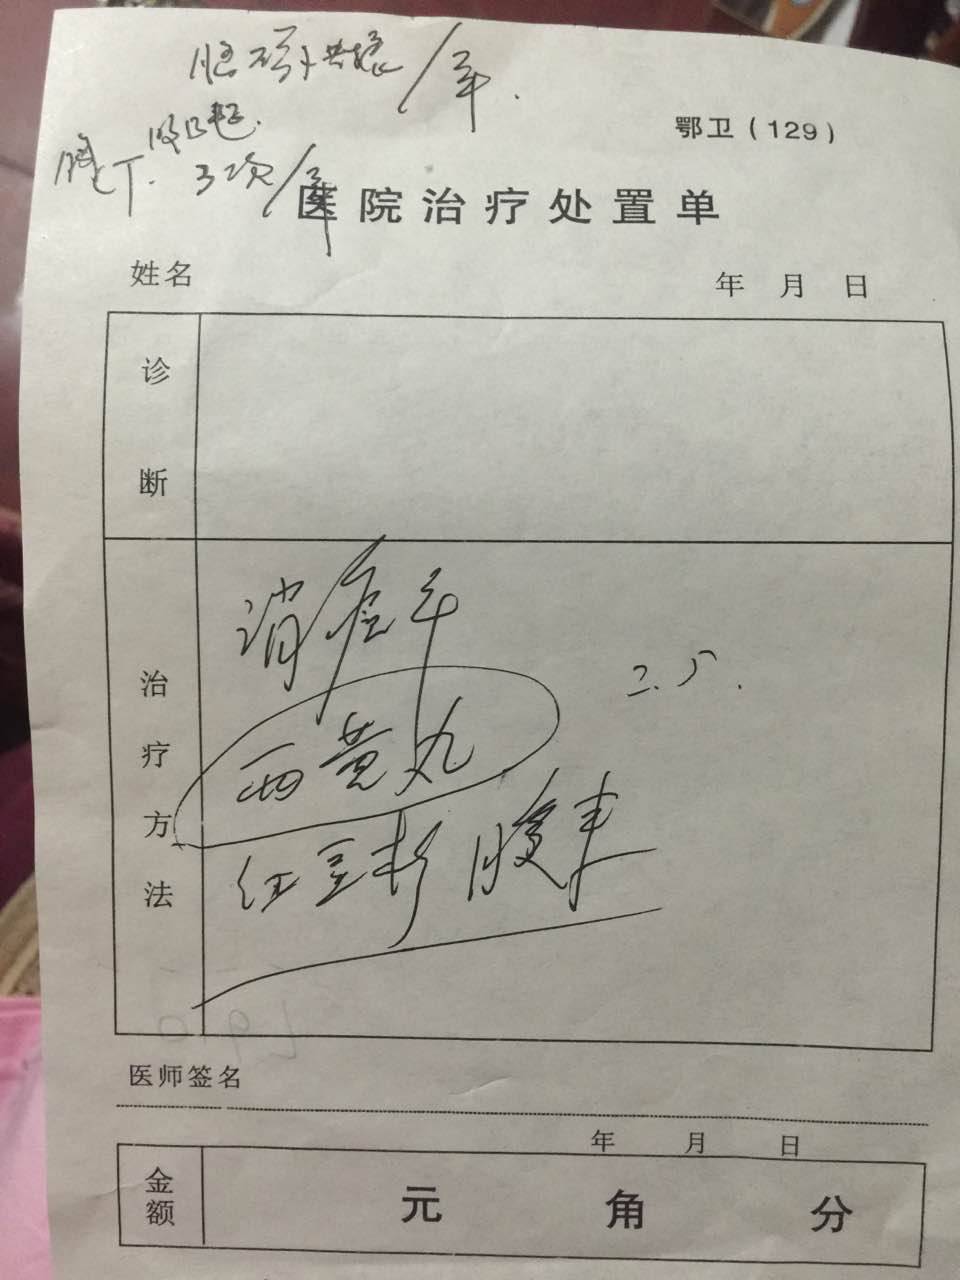 /年.
鄂卫（129）
3次/年
医院治疗处置单
姓名
年 月 日
诊断
消癌平
2.5.
西黄丸
红豆杉胶囊
治疗方法
医师签名
年 月 日
金额 元 角 分